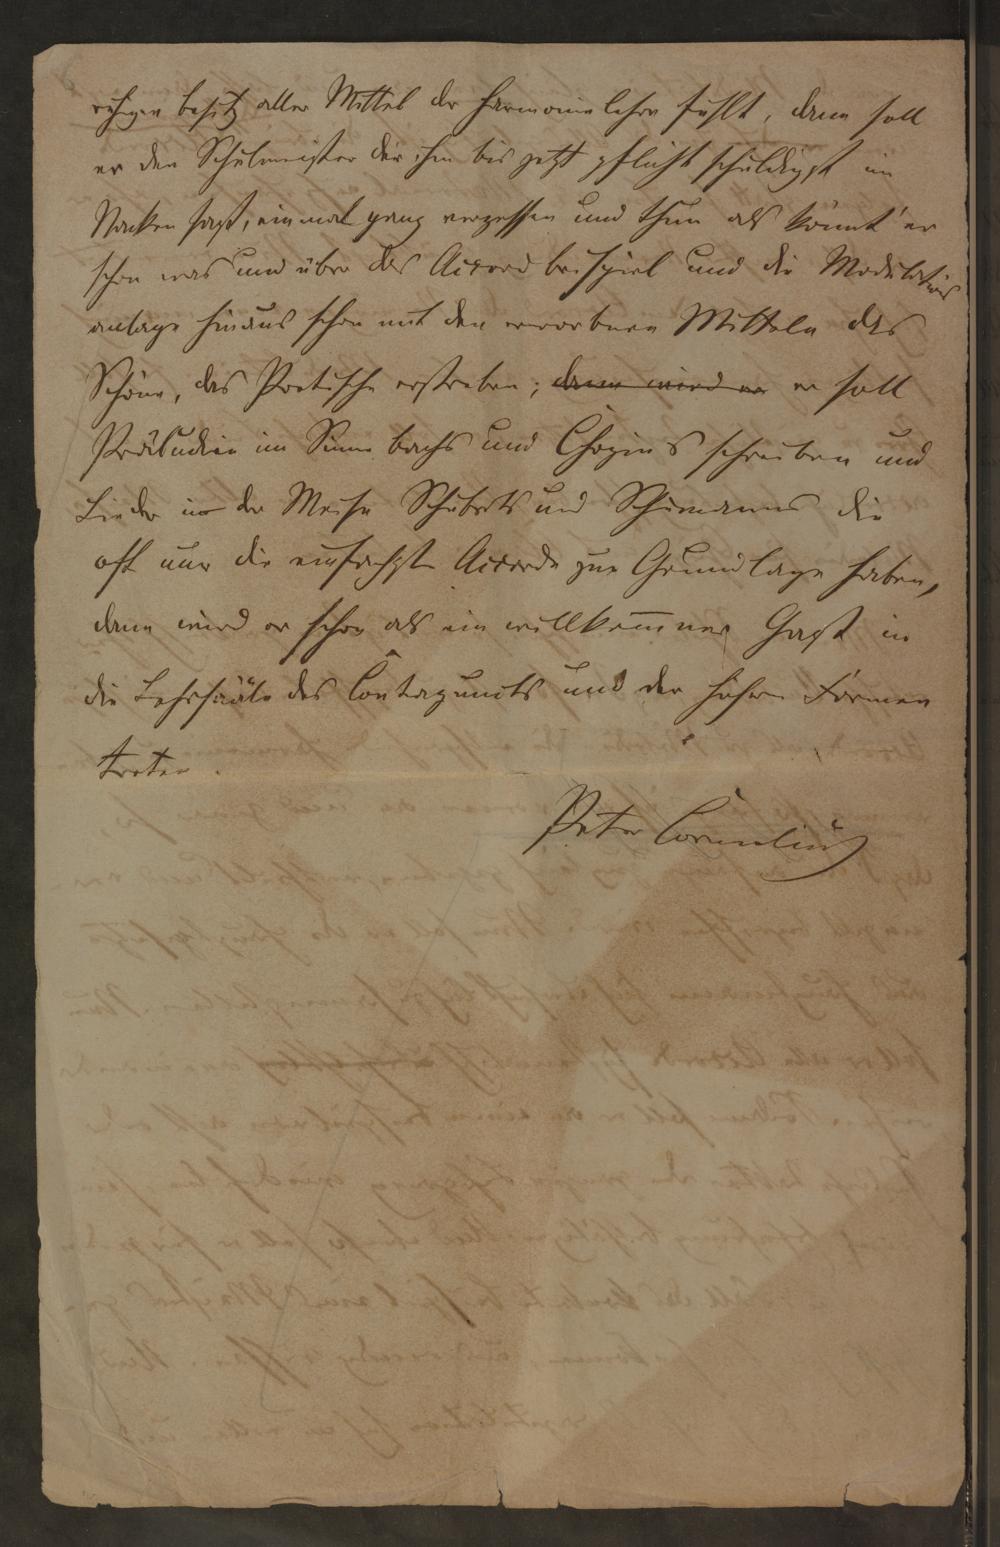 ruhigen Besitz aller Mittel der Harmonielehre fühlt, dann soll
er den Schulmeister der ihm bis jetzt pflichtschuldigst im
Nacken saß, einmal ganz vergessen und thun als könnt' er
schon was und über das Accordbeispiel und die Modulations
anlage hinaus schon mit den erworbnen Mitteln das
Schöne, das Poetische erstreben; dann wird er er soll
Präludien im Sinne Bachs und Chopins schreiben und
Lieder in der Weise Schuberts und Schumanns die
oft nur die einfachsten Accorde zur Grundlage haben,
dann wird er schon als ein willkommner Gast in
die Lehrsääle des Contrapuncts und der höhern Formen
treten.
Peter Cornelius